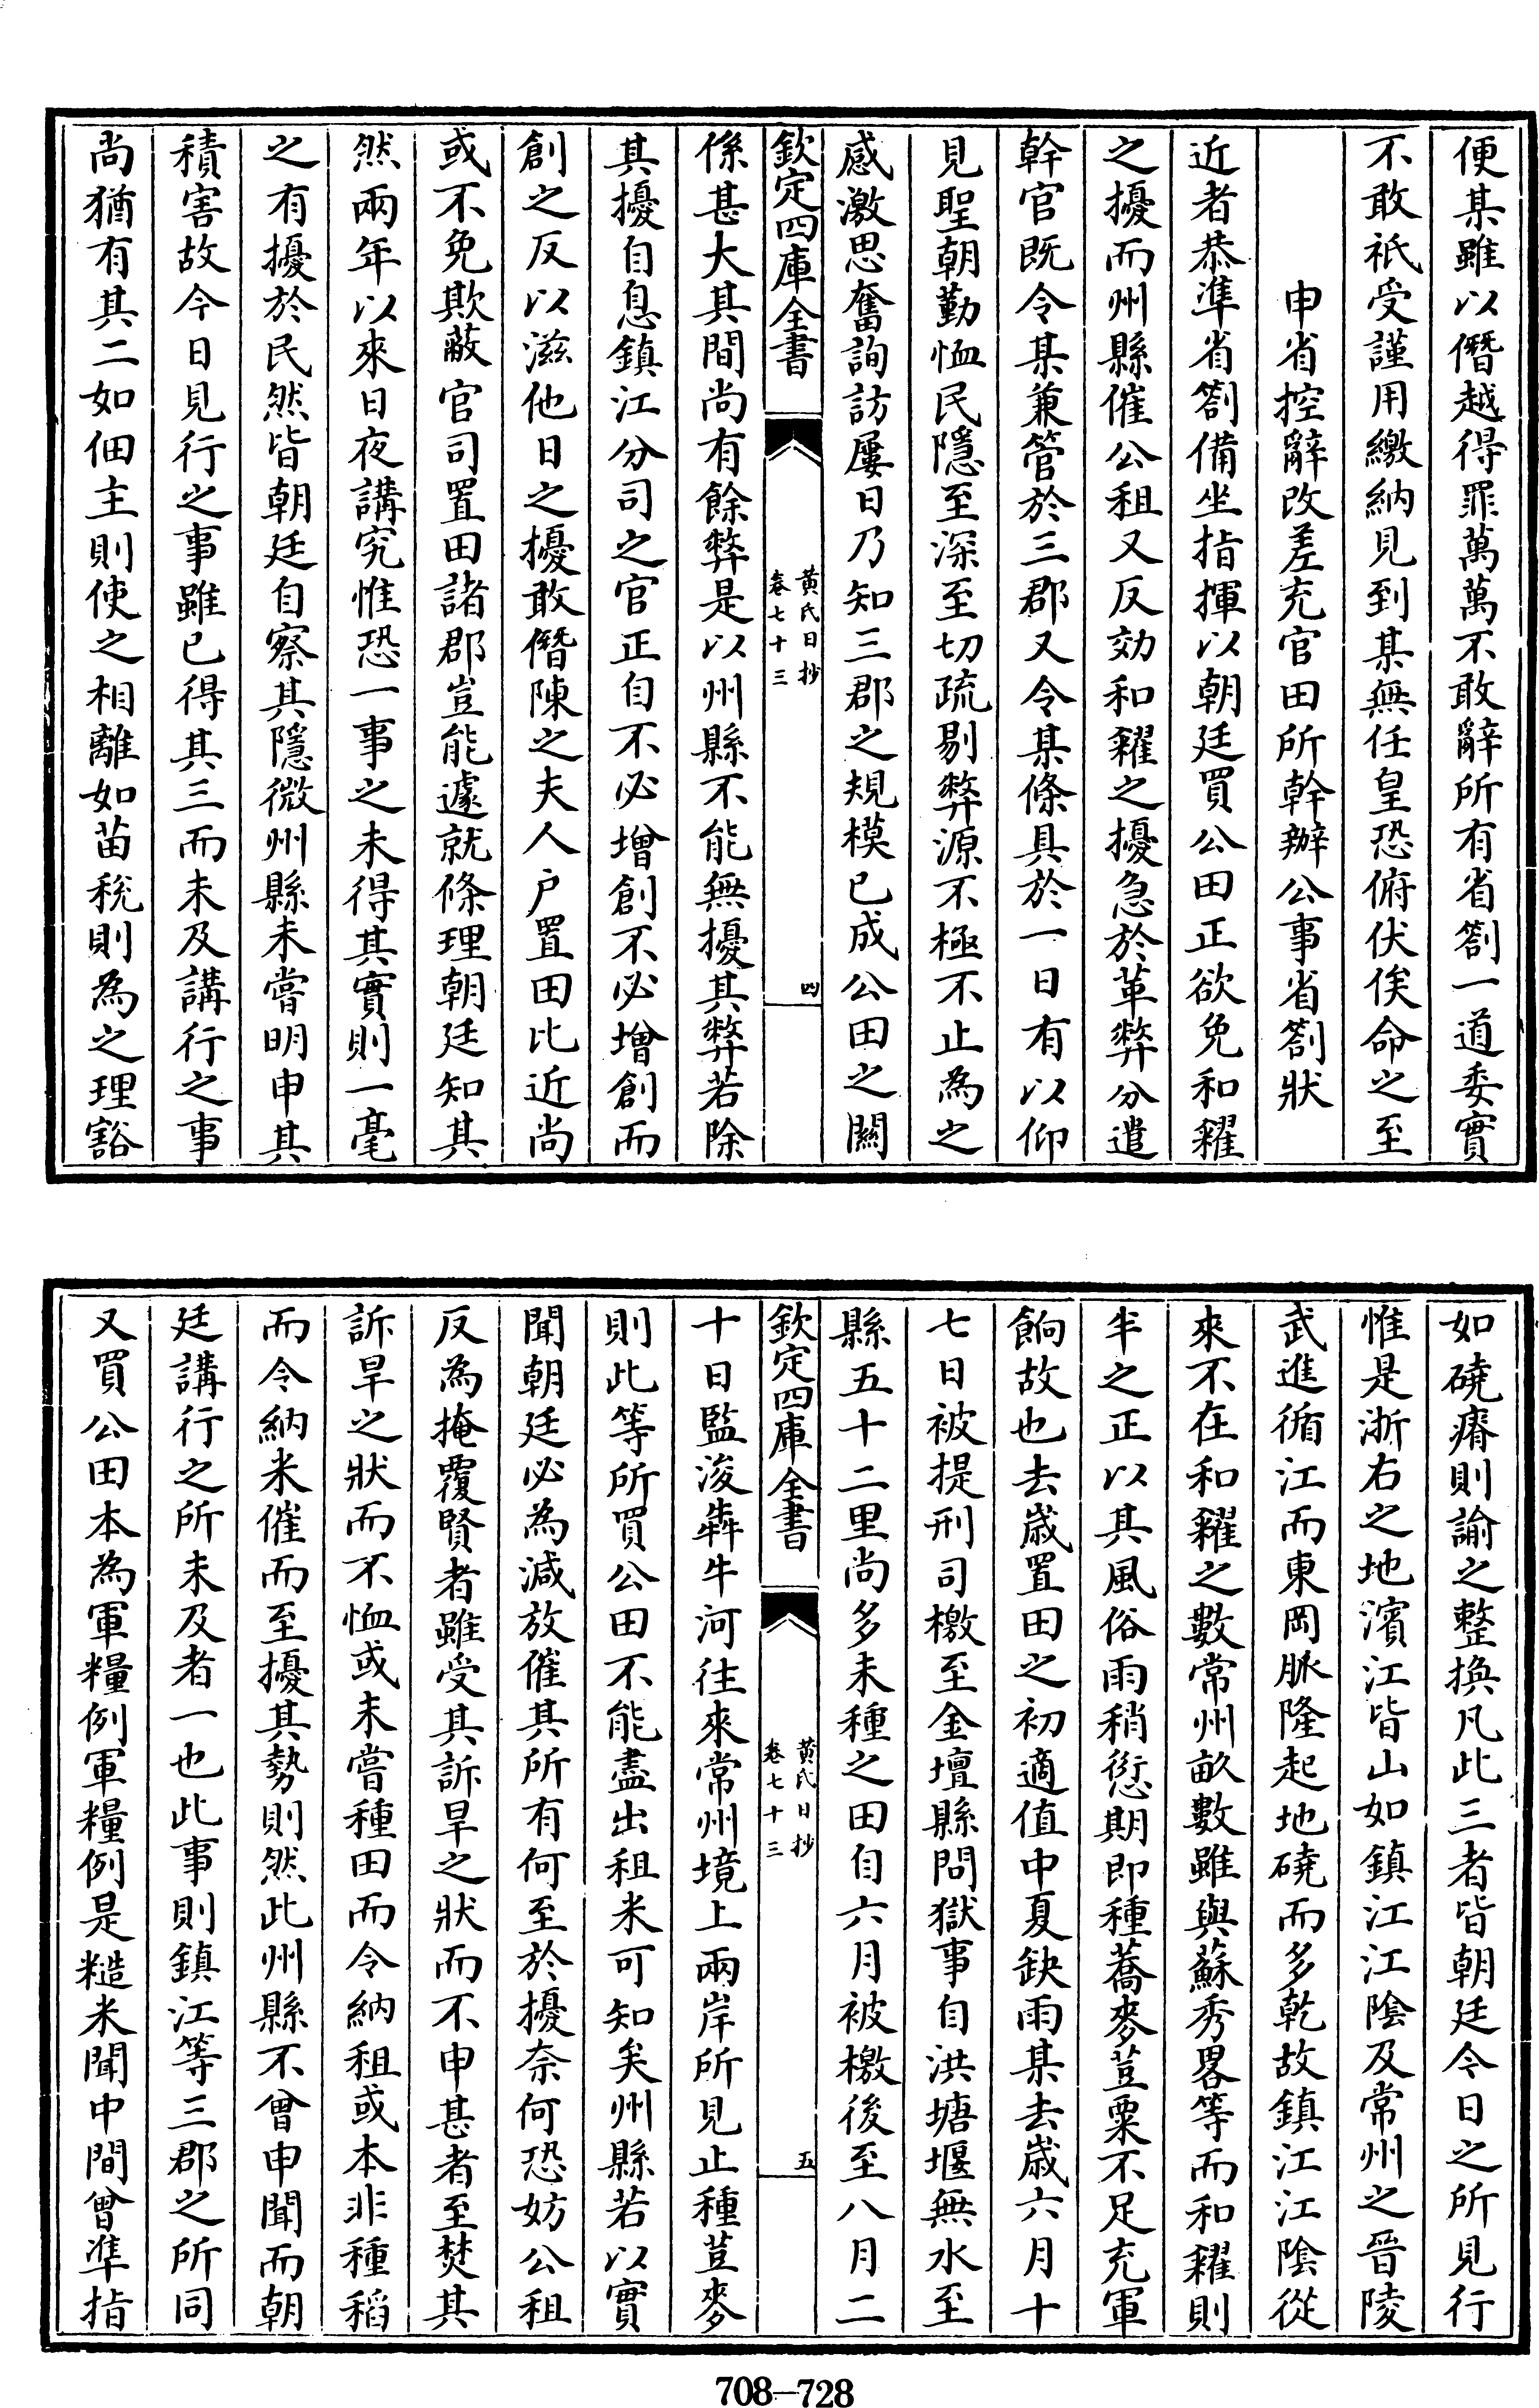 便某雖以僭越得罪萬萬不敢辭所有省劄一道委實
不敢祇受謹用繳納見到某無任皇恐俯伏俟命之至
申省控辭改差充官田所幹辦公事省劄狀
近者恭準省劄備坐指揮以朝廷買公田正欲免和糴
之擾而州縣催公租又反効和糴之擾急於革弊分遣
幹官既令某兼管於三郡又令某條具於一日有以仰
見聖朝勤恤民隱至深至切疏剔弊源不極不止為之
感激思奮詢訪屢日乃知三郡之規模已成公田之關
欽定四庫全書
黃氏日抄
卷七十三
四
係甚大其間尚有餘弊是以州縣不能無擾其弊若除
其擾自息鎮江分司之官正自不必增創不必增創而
創之反以滋他日之擾敢僭陳之夫人户置田比近尚
或不免欺蔽官司置田諸郡豈能遽就條理朝廷知其
然兩年以來日夜講究惟恐一事之未得其實則一毫
之有擾於民然皆朝廷自察其隱微州縣未嘗明申其
積害故今日見行之事雖已得其三而未及講行之事
尚猶有其二如佃主則使之相離如苗稅則為之理豁
如磽瘠則諭之整換凡此三者皆朝廷今日之所見行
惟是浙右之地濱江皆山如鎮江江陰及常州之晉陵
武進循江而東岡脈隆起地磽而多乾故鎮江江陰從
來不在和糴之數常州畝數雖與蘇秀畧等而和糴則
半之正以其風俗雨稍愆期即種蕎麥荳粟不足充軍
餉故也去歲置田之初適值中夏缺雨某去歲六月十
七日被提刑司檄至金壇縣問獄事自洪塘堰無水至
縣五十二里尚多未種之田自六月被檄後至八月二
欽定四庫全書
黃氏日抄
卷七十三
五
十日監浚犇牛河往來常州境上兩岸所見止種荳麥
則此等所買公田不能盡出租米可知矣州縣若以實
聞朝廷必為減放催其所有何至於擾奈何恐妨公租
反為掩覆賢者雖受其訴旱之狀而不申甚者至焚其
訴旱之狀而不恤或未嘗種田而令納租或本非種稻
而令納米催而至擾其勢則然此州縣不曾申聞而朝
廷講行之所未及者一也此事則鎮江等三郡之所同
又買公田本為軍糧例軍糧例是糙米聞中間曾準指
708—728